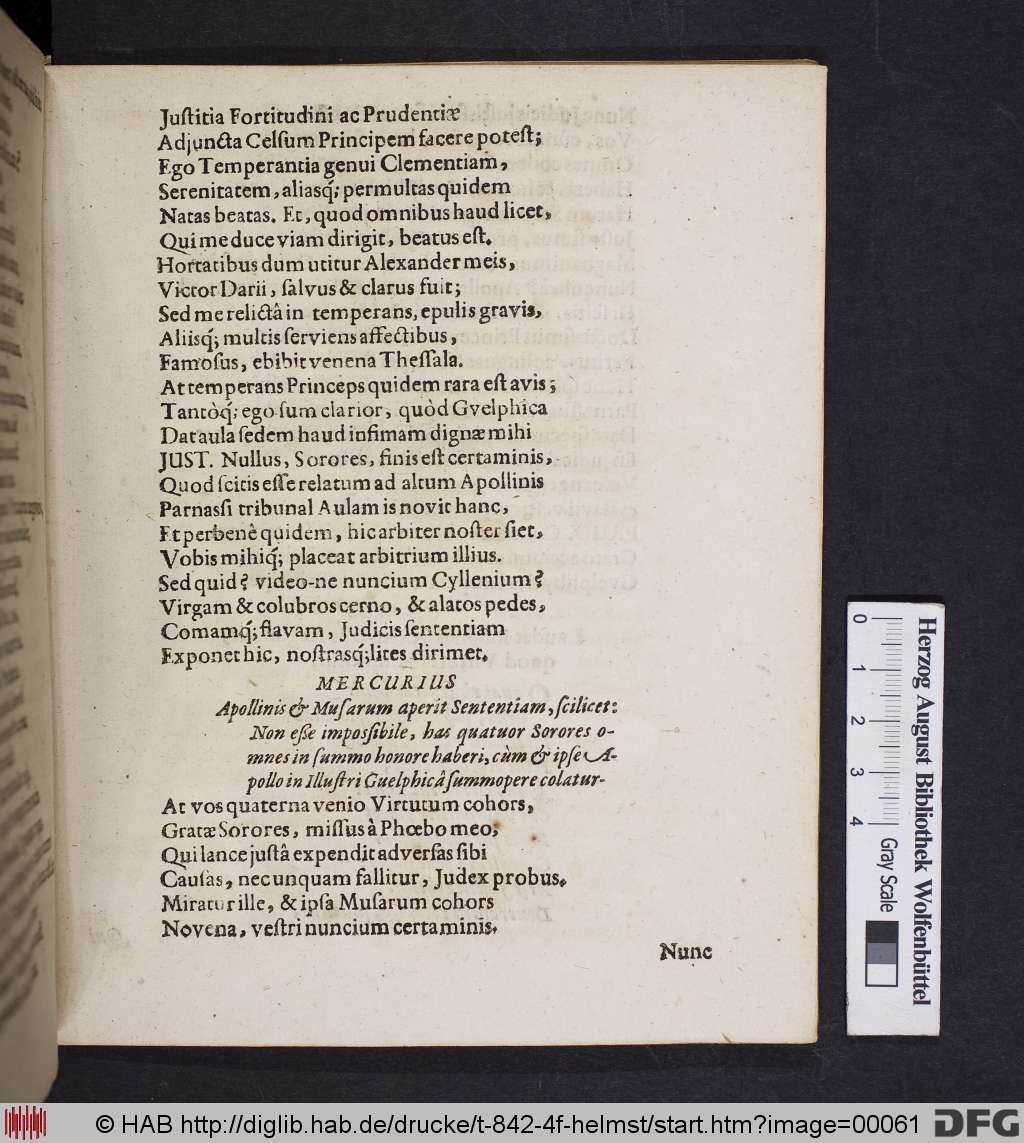 Juſtitia Fortitudini ac Prudentiæ
Adjuncta Celſum Principem facere poteſt;
Ego Temperantia genui Clementiam,
Serenitatem, aliasq́; permultas quidem
Natas beatas. Et, quod omnibus haud licet,
Qui me duce viam dirigit, beatus eſt.
Hortatibus dum utitur Alexander meis,
Victor Darii, ſalvus & clarus fuit;
Sed me relictâ in temperans, epulis gravis,
Aliisq́; multis ſerviens affectibus,
Famoſus, ebibit venena Theſſala.
At temperans Princeps quidem rara eſt avis;
Tantòq́; ego ſum clarior, quòd Gvelphica
Dat aula ſedem haud infimam dignæ mihi
JUST. Nullus, Sorores, finis eſt certaminis,
Quod ſcitis eſſe relatum ad altum Apollinis
Parnaſſi tribunal Aulam is novit hanc,
Et perbenè quidem, hic arbiter noſter ſiet,
Vobis mihiq́; placeat arbitrium illius.
Sed quid? video-ne nuncium Cyllenium?
Virgam & colubros cerno, & alatos pedes,
Comamq́; flavam, Judicis ſententiam
Exponet hic, noſtrasq́; lites dirimet.
MERCURIUS
Apollinis & Muſarum aperit Sententiam, ſcilicet:
Non eſſe impoſſibile, has quatuor Sorores o-
mnes in ſummo honore haberi, cùm & ipſe A-
pollo in Illuſtri Guelphicâ ſummopere colatur-
At vos quaterna venio Virtutum cohors,
Gratæ Sorores, miſſus à Phœbo meo,
Qui lance juſtâ expendit adverſas ſibi
Cauſas, nec unquam fallitur, Judex probus.
Miratur ille, & ipſa Muſarum cohors
Novena, veſtri nuncium certaminis.
Nunc
0 1 2 3 4
Gray Scale
Herzog August Bibliothek Wolfenbüttel
© HAB http://diglib.hab.de/drucke/t-842-4f-helmst/start.htm?image=00061
DFG